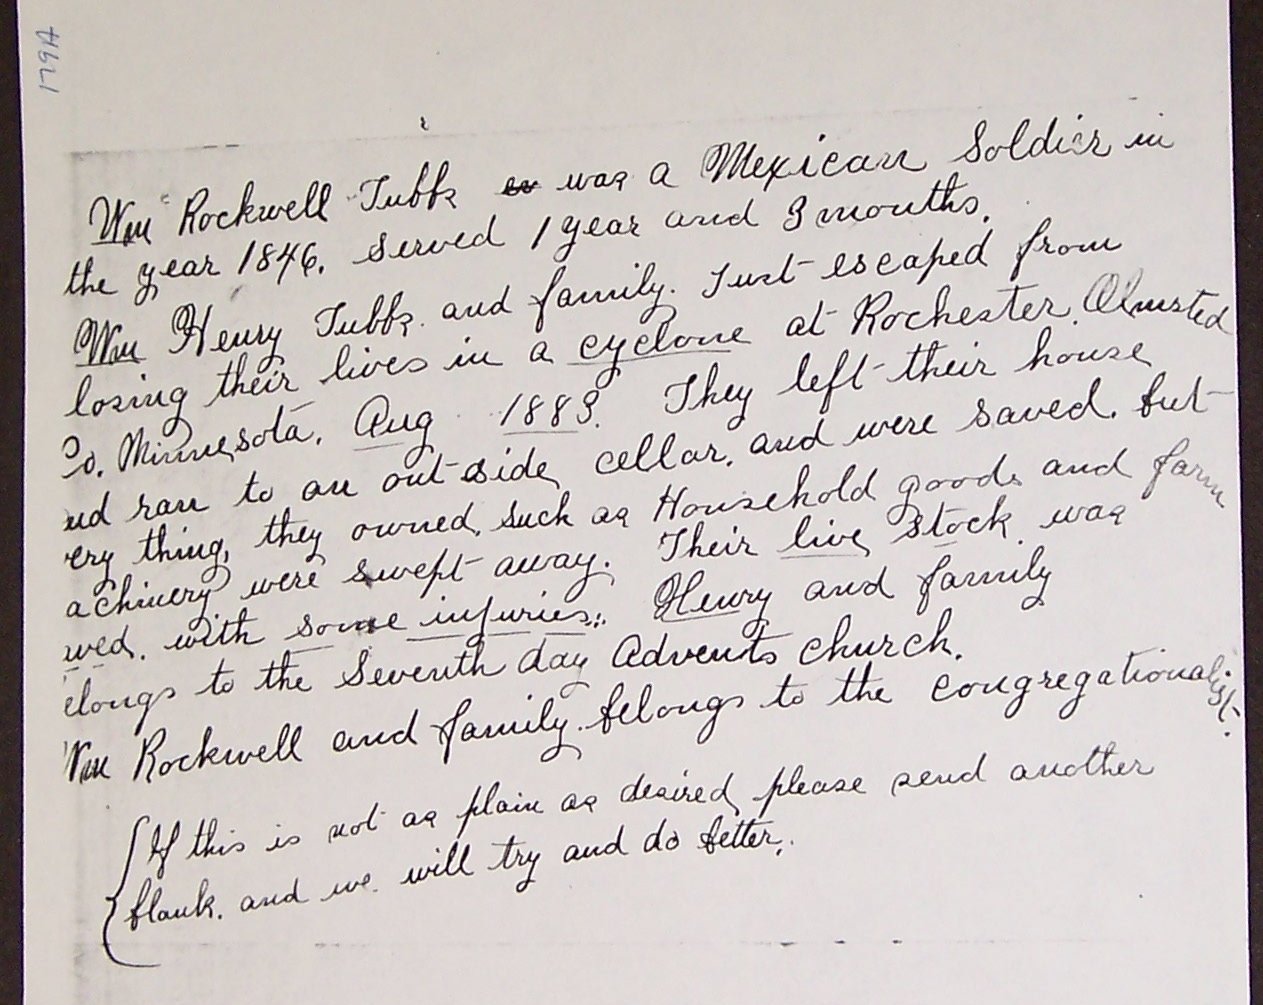 Wm Rockwell Tubbs was a Mexican Soldier in
the year 1846. Served 1 year and 3 months.
Wm Henry Tubbs. and family. Just escaped from
losing their lives in a cyclone at Rochester. Olmsted
Co. Minnesota. Aug 1883. They left their house
nd ran to an out-side cellar. and were saved. but
very thing, they owned. such as Household goods and farm
achinery were swept away. Their live stock was
aved. with some injuries. Henry and family
elongs to the Seventh day Advents church.
Wm Rockwell and family. belongs to the Congregationalist.
If this is not as plain as desired please send another
blank. and we will try and do better.